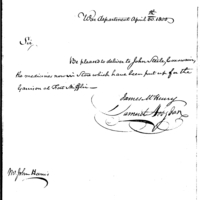 War Department April 30th 1800
Sir,
Be pleased to deliver to John Steele,
the medicines now in Store which have been put up for the
Garrison at Fort Mifflin
James McHenry
Samuel Hodgdon
Mr John Harris